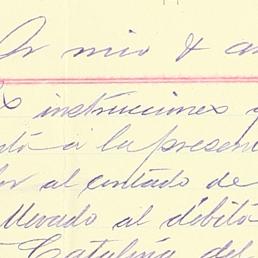 Sr mio & am
instrucciones y
a la present
por al contado de
llevado al débito
Catalina del